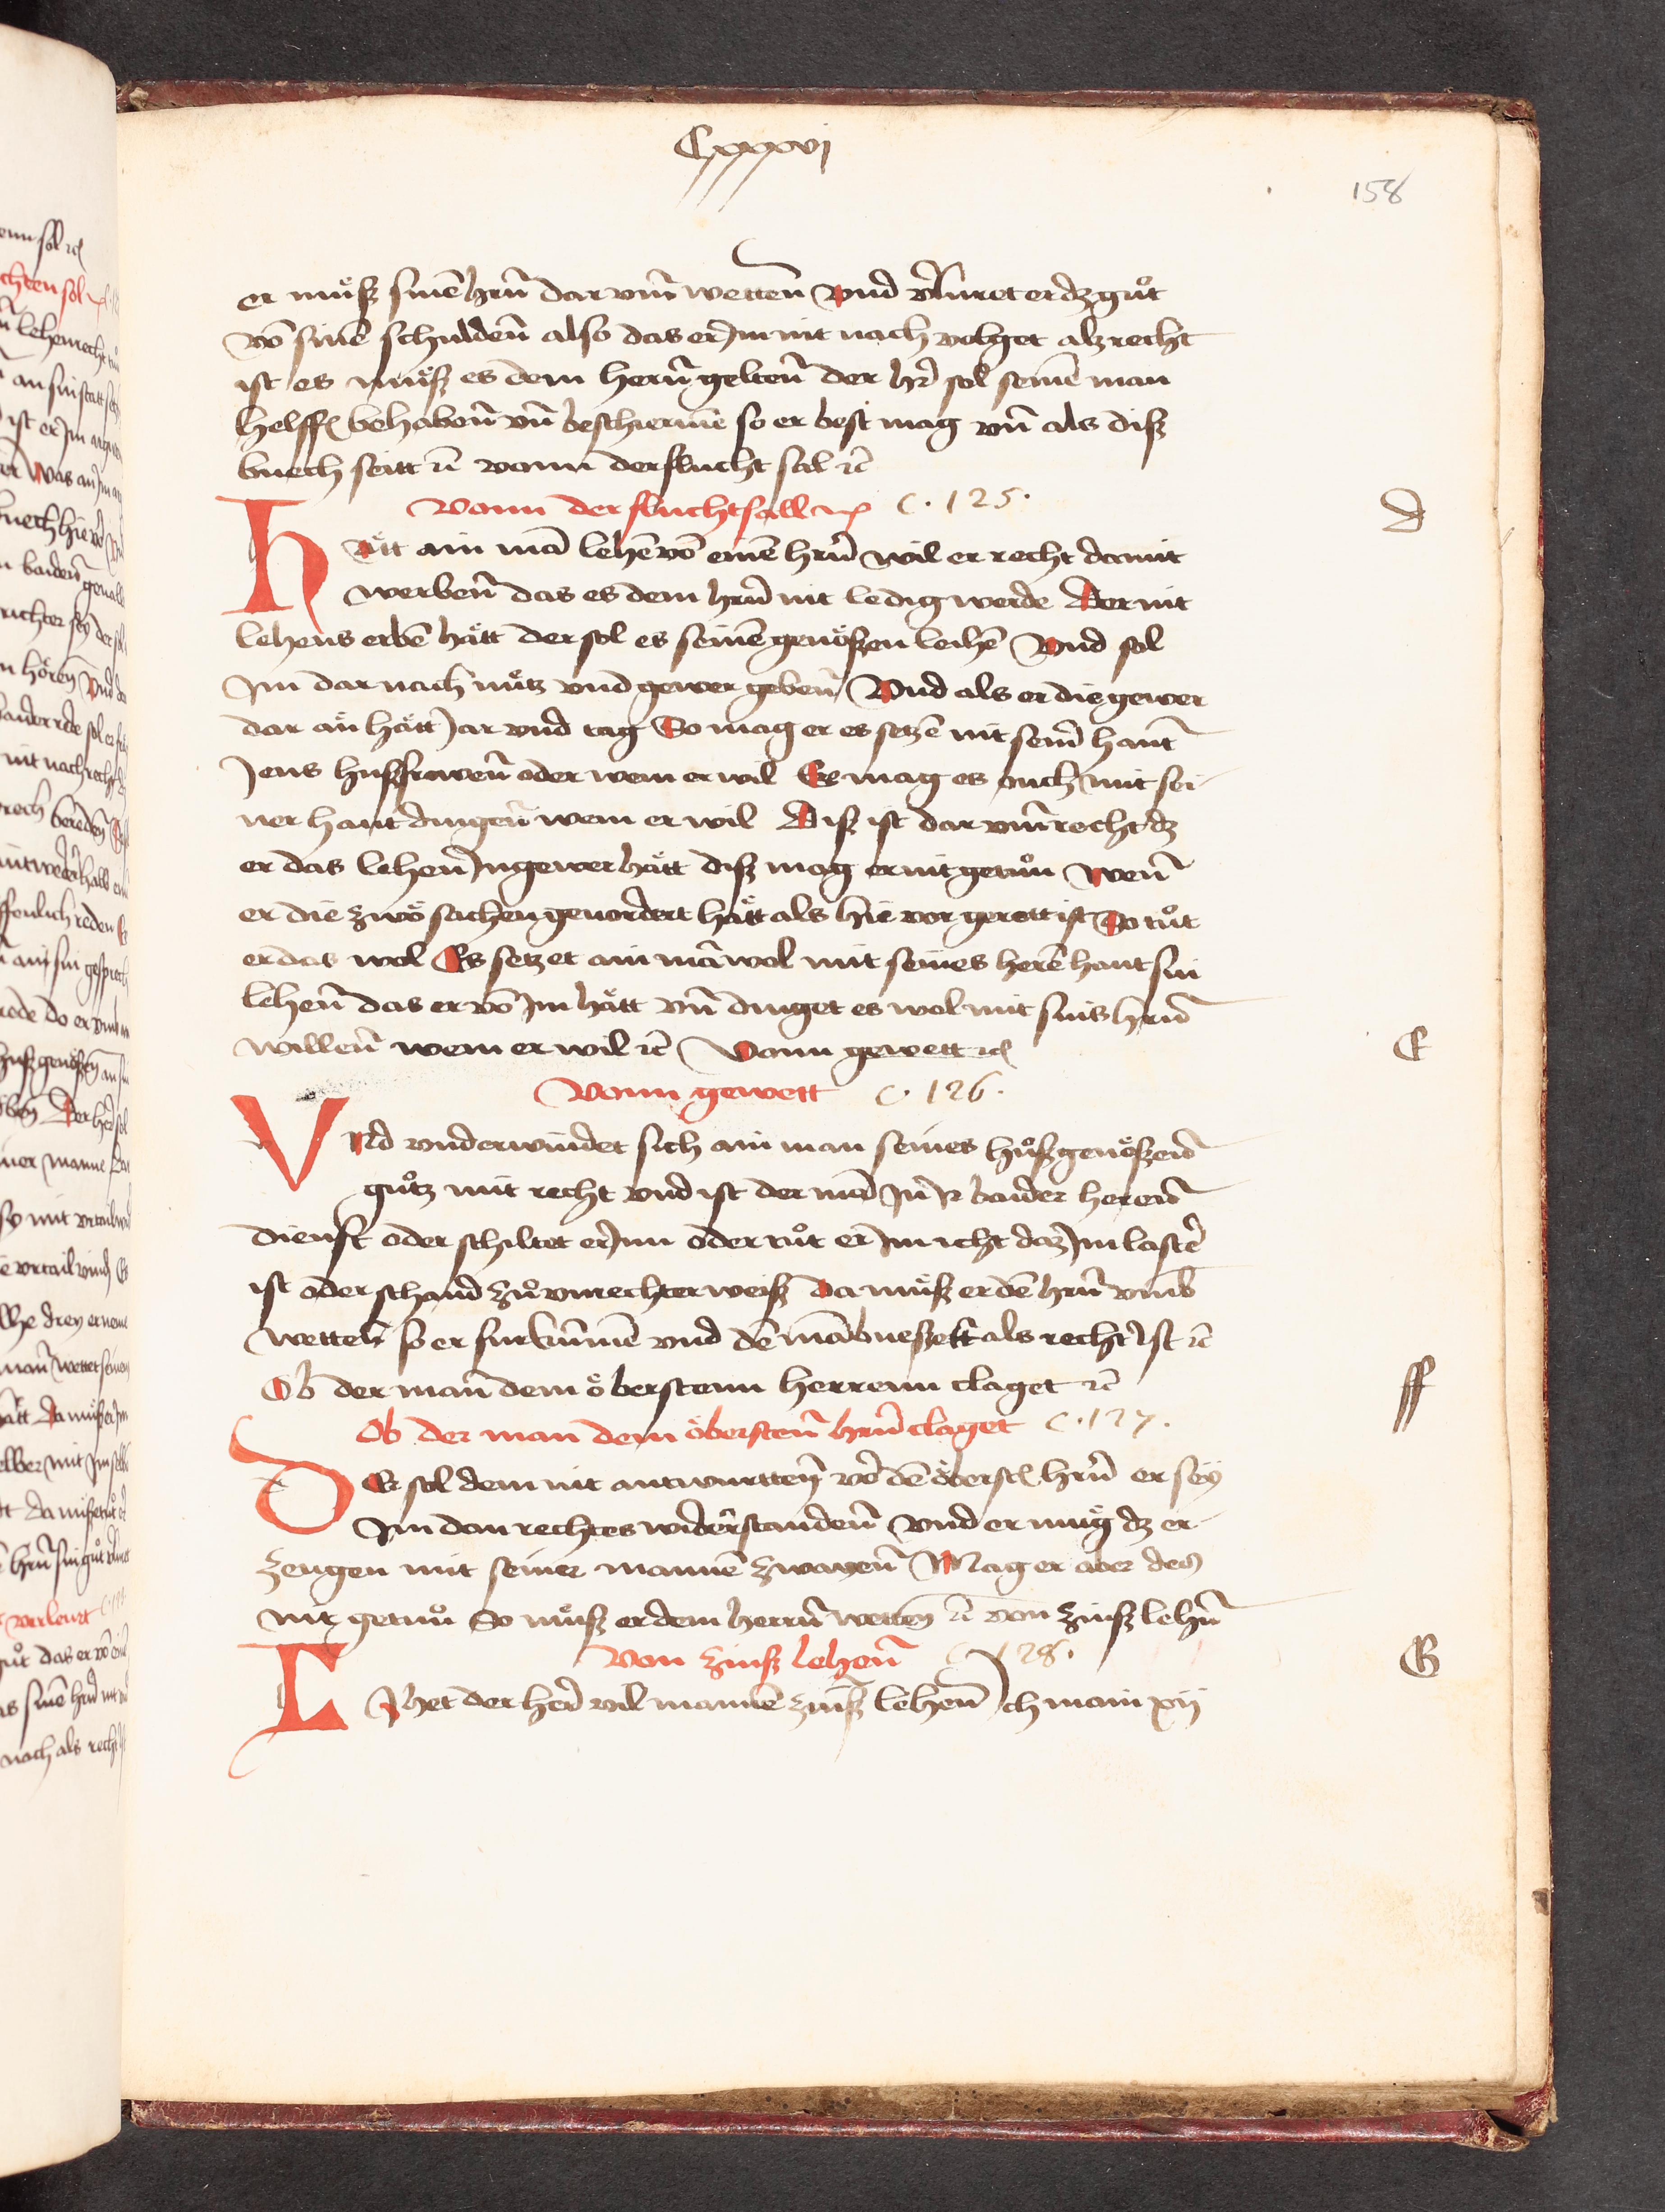 Cxxxvi
158
er muͦß sinē hrn̄ dar vm̄ wettenn̄ vnd v̾lüret er dz guͦt
vō sinē schuldenn̄ also das er Jm nit nach volget alz recht
ist es muͦß es dem hern̄ geltenn̄ der hr̄ sol seinē man
helffē behabenn̄ vn̄ beschiermē so er best mag vn̄ als diß
buech seitt rc̄ vonn der flucht sal rc̄
Vonn der fluchtsall rc̄ C. 125.
D
Hätt ain mā lehē vō einē hrn̄ wil er recht damit
werbenn̄ das es dem hrn̄ nit ledig werde Der nit
lehens erbē hätt der sol es seinē genöszen leihē Vnd sol
Jm dar nach nutz vnd gewer gebenn̄ Vnd als er die gewer
dar an hätt Jar vnd tag So mag er es setzē mit seinē hant
Jens hußfrowenn̄ oder wem er wil Er mag es ouch mit sei-
ner hant dingenn̄ wem er wil Diß ist dar vm̄ recht dz
er das lehenn̄ Jn gewer hätt diß mag er nit getuͦn wenn̄
er die zwo sachen geuordert hätt als hie vor gerett ist So tuͦt
er das wol Es setzet ain mā wol mit seines herē hant sin
lehenn̄ das er vō Jm hätt vn̄ dinget es wol mit sins hrn̄
willenn̄ wem er wil rc̄ Vonn gewett rc̄
E
Vonn gewett C. 126.
Vnd vnderwindet sich ain man seines huͦßgenößenn̄
guͦtz mit recht vnd ist der man Jn ir baider herenn̄
dienst oder schiltet er Jm oder tuͦt er Jm icht daz Jm lastē
ist oder schand zuͦ vnrechter weiß da muͦß er dē hrn̄ vmb
wettenn̄ so er fürkumē vnd dē mā bueßett als recht ist rc̄
Ob der man dem öberstenn herrenn claget rc̄
ff
Ob der man dem öberstenn̄ hrn̄ claget C. 127.
Der sol dem nit antwurttenn̄ vō dē öberstē hrn̄ er sey
Jm dan rechtes widerstandenn̄ Vnd er mug dz er-
zeugen mit seiner mannē zwayenn̄ Mag er aber des
nit getuͦn So muͦß er dem herrn̄ wettenn̄ rc̄ von zinß lehn̄
G
Von zinß lehenn̄ C 128.
LJhet der her̄ vil mannē zinß lehenn̄ Jch main xij